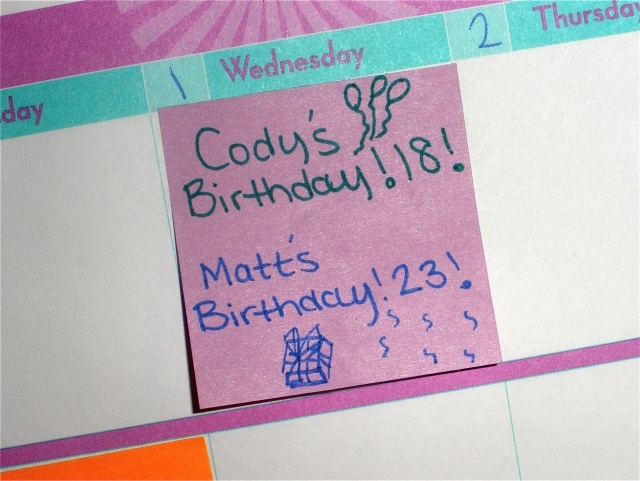 day
1
Wednesday
2
Thursday
Cody's
Birthday! 18!
Matt's
Birthday! 23!